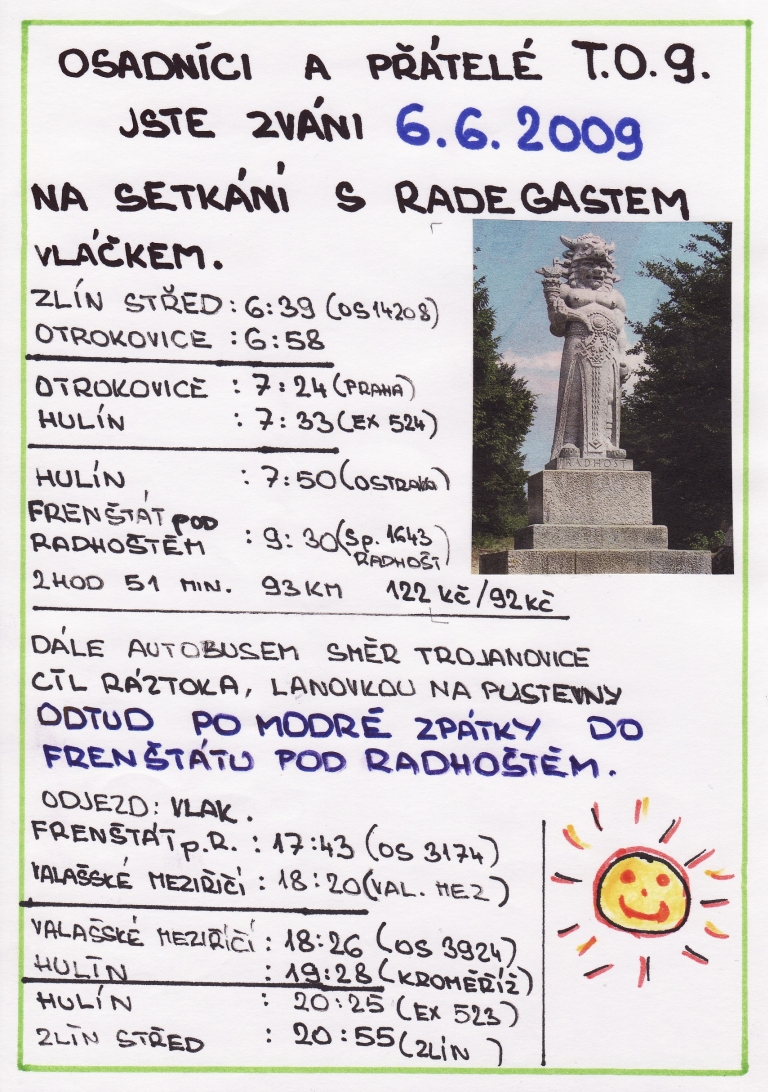 OSADNÍCI A PŘÁTELÉ T.O.9.
JSTE ZVÁNI 6.6.2009
NA SETKÁNÍ S RADEGASTEM
VLÁČKEM.
ZLÍN STŘED : 6:39 (OS 14208)
OTROKOVICE : 6:58
OTROKOVICE : 7:24 (PRAHA)
HULÍN : 7:33 (EX 524)
HULÍN : 7:50 (OSTRAVA)
FRENŠTÁT POD
RADHOŠTĚM : 9:30 (Sp. 1643
RADHOŠŤ)
2HOD 51 MIN. 93 KM 122 KČ/92 KČ
RADHOST
DÁLE AUTOBUSEM SMĚR TROJANOVICE
CÍL RÁZTOKA, LANOVKOU NA PUSTEVNY
ODTUD PO MODRÉ ZPÁTKY DO
FRENŠTÁTU POD RADHOŠTĚM.
ODJEZD: VLAK.
FRENŠTÁT p.R. : 17:43 (OS 3174)
VALAŠSKÉ MEZIŘÍČÍ : 18:20 (VAL. MEZ)
VALAŠSKÉ MEZIŘÍČÍ : 18:26 (OS 3924)
HULÍN : 19:28 (KROMĚŘÍŽ)
HULÍN : 20:25 (EX 523)
ZLÍN STŘED : 20:55 (ZLÍN)